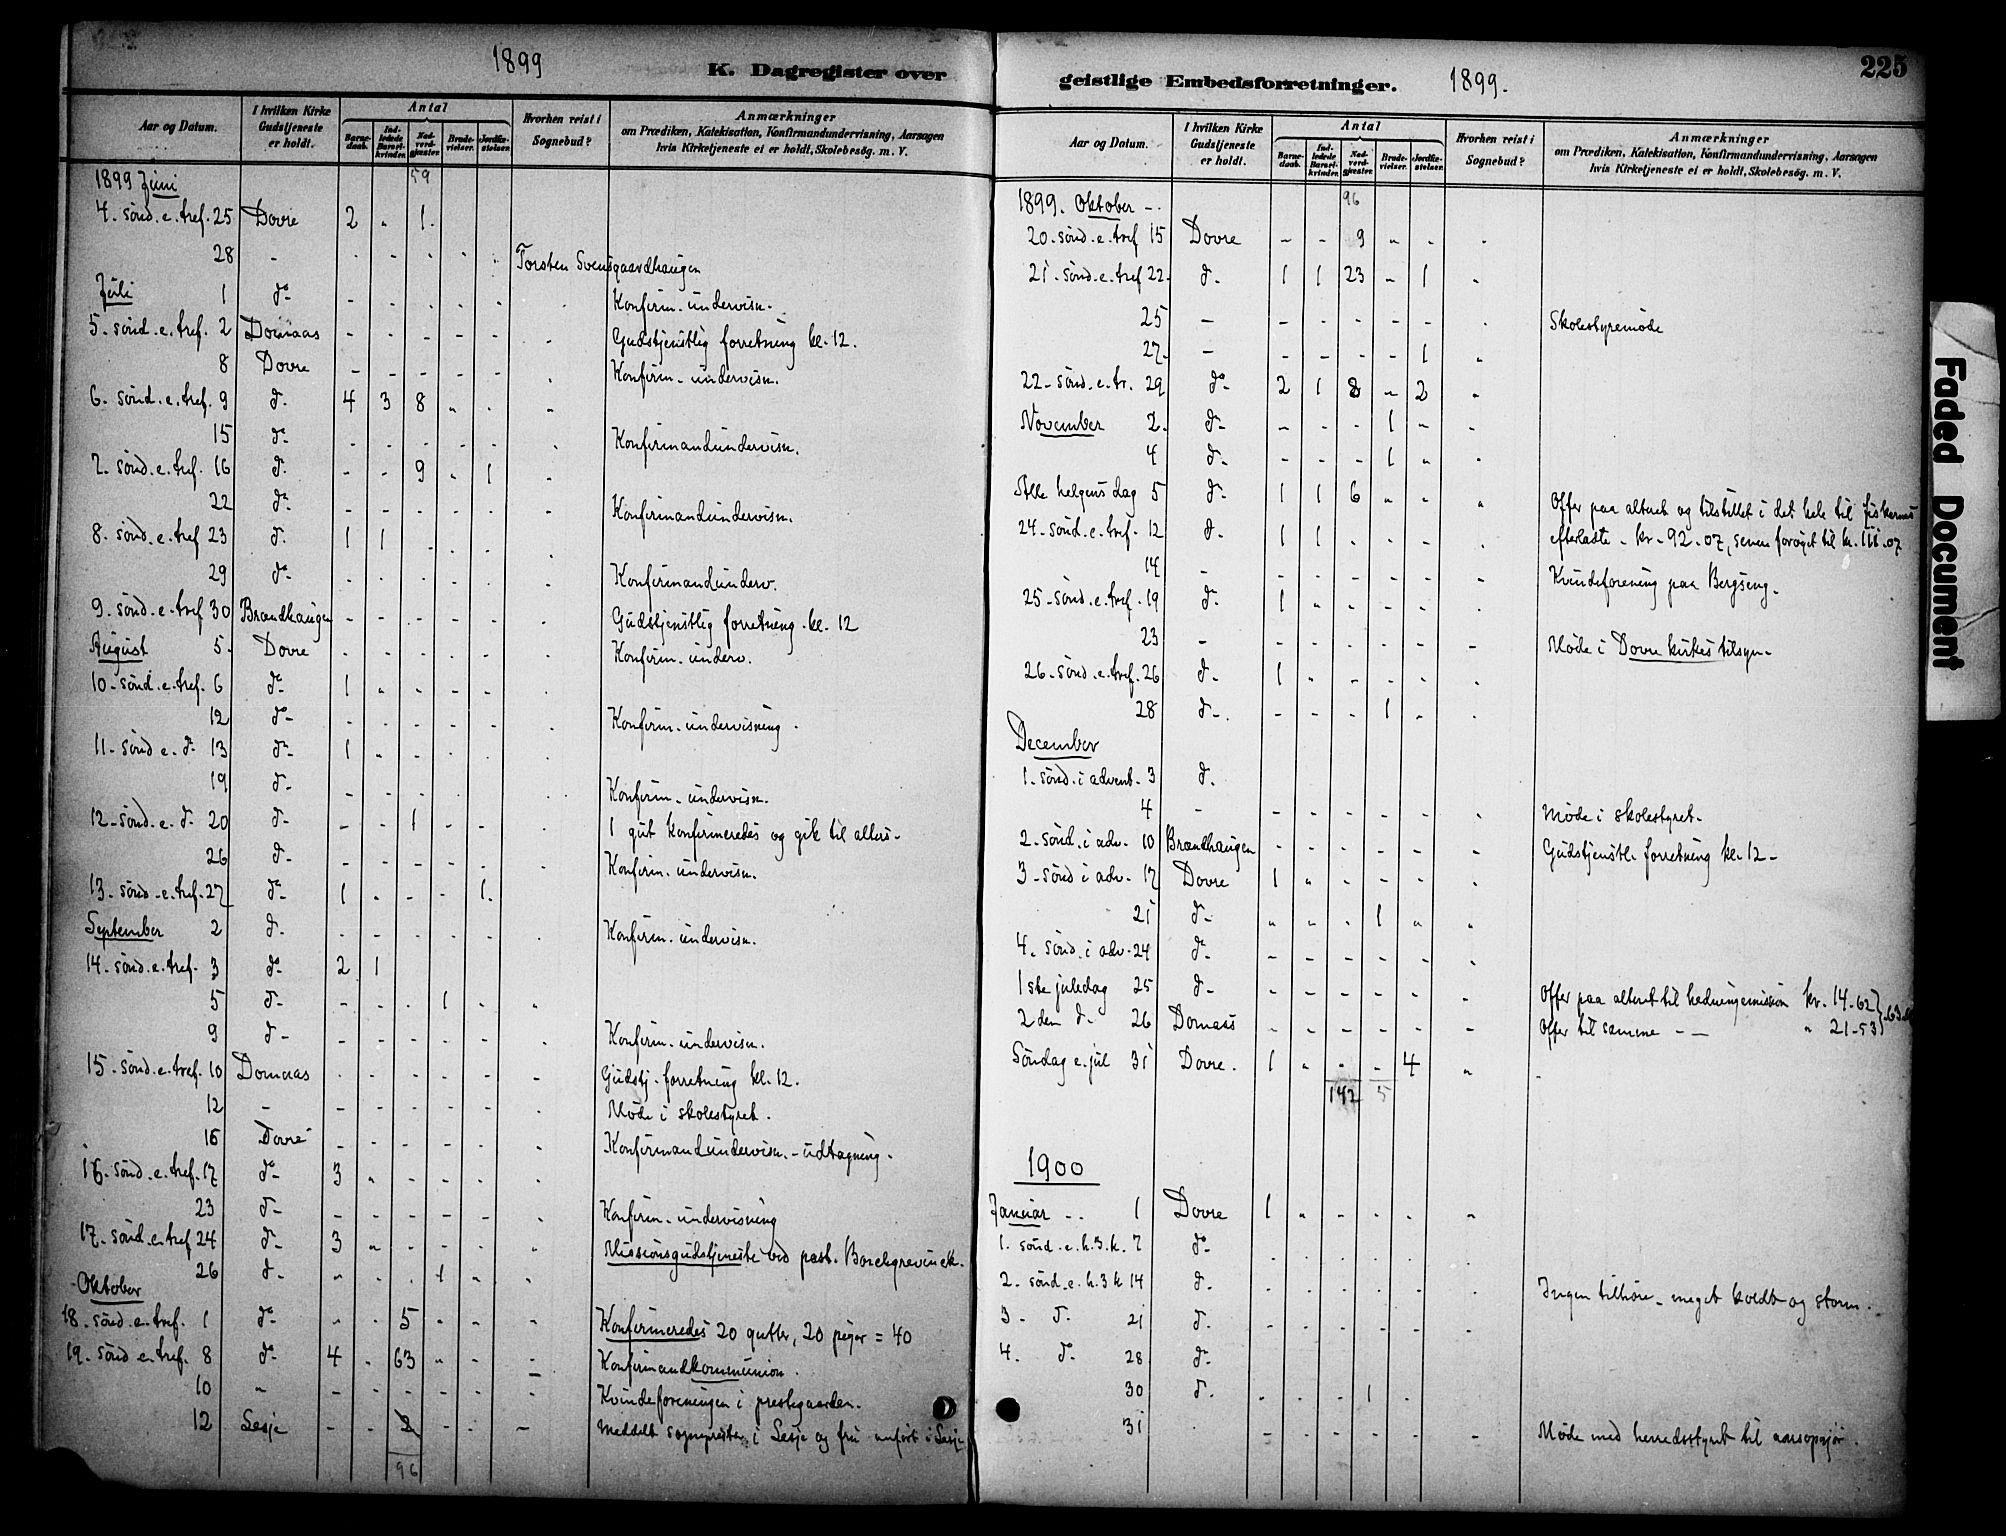 1899
K. Dagregister over
Aar og Datum.
I hvilken Kirke Gudstjeneste er holdt.
Antal
Barnedaab.
Indledede Barselkvinder.
Nadverdgjester.
Brudevielser.
Jordfæstelser.
Hvorhen reist i Sognebud?
Anmærkninger
om Prædiken, Katekisation, Konfirmandundervisning, Aarsagen
hvis Kirketjeneste ei er holdt, Skolebesøg. m. V.
1899 Juni 59
4. sønd. e. tref. 25 Dovre 2 " 1.
28 - Torsten Svensgaardhaugen
Juli 1 do - Konfirm. undervisn.
5. sønd. e. tref. 2 Domaas Gudstjenstlig forretning kl. 12.
8 Dovre Konfirm. undervisn.
6. sønd. e. tref. 9 do 4 3 8
15 do Konfirmandundervisn.
7. sønd. e. tref. 16 do - - 9 " 1
22 do Konfirmandundervisn.
8. sønd. e. tref 23 do 1 1
29 do Konfirmandunderv.
9. sønd. e. tref 30 Brændhaugen Gudstjenstlig forretning kl. 12
August 5. Dovre Konfirm. underv.
10. sønd. e. tref. 6 do 1
12 do Konfirm. undervisning.
11. sønd e. do 13 do 1
19 do Konfirm. undervisn.
12. sønd. e. do 20 do - - 1 1 gut konfirmeredes og gik til alters.
26 do Konfirm. undervisn.
13. sønd. e. tref. 27 do 1 - - - 1.
September 2 do Konfirm. undervisn.
14. sønd. e. tref. 3 do 2 1
5 do - - - 1
9 do Konfirm. undervisn.
15. sønd. e. tref. 10 Domaas Gudstj. forretning kl. 12.
12 - Møde i skolestyret.
16 Dovre Konfirmandundervisn. - udtagning.
16. sønd. e. tref. 17 do 3
23 do Konfirm. undervisning
17. sønd. e. tref 24 do 3 Missionsgudstjeneste ved past. Borchgrevinck.
26 do - - - 1
Oktober
18. sønd. e. tref. 1 do " " 5 Konfirmeredes 20 gutter, 20 piger = 40
19. sønd e. tref. 8 do 4 " 63 Konfirmandkommunion.
10 " Kvindeforeningen i prestegaarden.
12 Lesje - - 2 Meddelt sogneprester i Lesje og fru anført i Lesje
96
geistlige Embedsforretninger. 1899.
225
Aar og Datum.
I hvilken Kirke Gudstjeneste er holdt.
Antal
Barnedaab.
Indledede Barselkvinder.
Nadverdgjester.
Brudevielser.
Jordfæstelser.
Hvorhen reist i Sognebud?
Anmærkninger
om Prædiken, Katekisation, Konfirmandundervisning, Aarsagen
hvis Kirketjeneste ei er holdt, Skolebesøg. m. V.
1899. Oktober - 96
20. sønd. e. tref 15 Dovre - - 9
21. sønd. e. tref 22. do 1 1 23 - 1
25 - Skolestyremøde
27. - - - - - 1
22. sønd. e. tr. 29 do 2 1 8 " 2
November 2. do - - - 1
4 do - - - 1
Alle helgens dag 5 do 1 1 6 Offer paa alteret og tilstillet i det hele til fiskernes
24. sønd. e. tref. 12 do 1 1 efterladte - kr. 92.07, senere forøget til kr. 111.07
14 - Kvindeforening paa Bergseng.
25. sønd. e. tref. 19 do 1
23 - Møde i Dovre kirkes tilsyn.
26. sønd. e. tref. 26 do 1
28 do - - - 1
December
1. sønd. i advent. 3 do
4 - Møde i skolestyret.
2. sønd. i adv. 10 Brændhaugen Gudstjenstl. forretning kl. 12 -
3. sønd i adv. 17 Dovre 1
21 do " " " 1
4. sønd. i adv. 24 do
1ste juledag 25 do Offer paa alteret til hedningemission kr. 14.62
2den do 26 Domaas Offer til samme - - " 21-53
Søndag e. jul 31 Dovre. 1 " " " 4
142 5
1900
Januar - - 1 Dovre 1
1. sønd. e. h. 3. k. 7 do
2. sønd. e. h. 3 k 14 do Ingen tilhøre. meget koldt og storm.
3 - do 21 do
4. do 28 do
30 do - - - 1
31 Møde med herredsstyret til aarsopgjør.
Faded Document